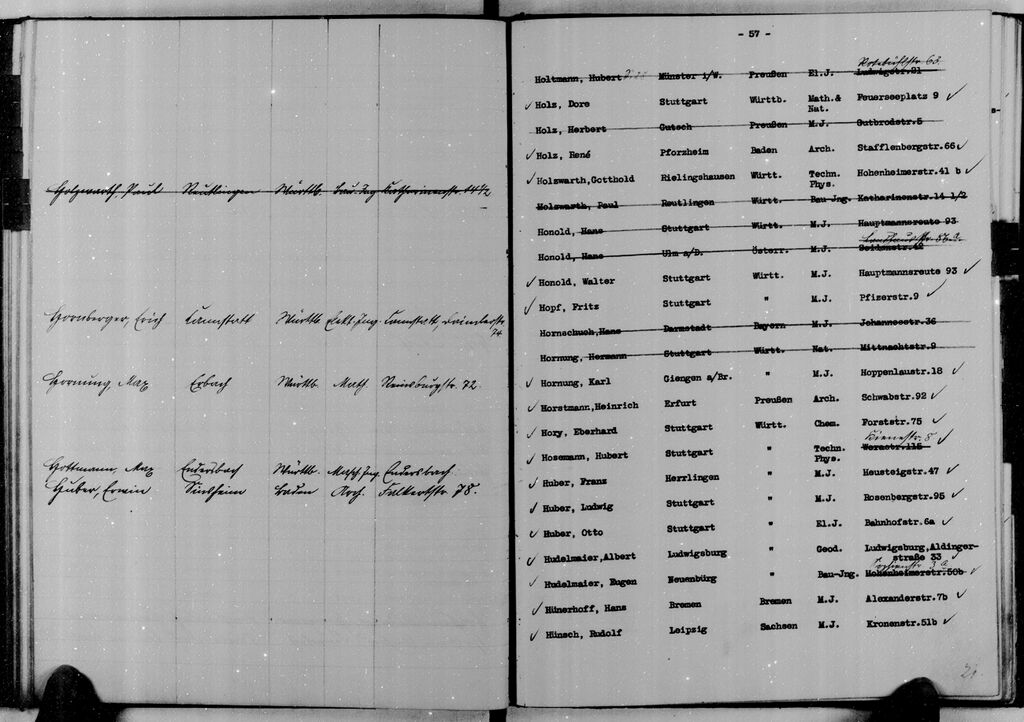 Holzwarth, Paul Reutlingen Württb. Bau-Ing. Katharinenstr. 14 1/2
Hornberger, Erich Cannstatt Württb. Elekt. Ing. Cannstatt, Daimlerstr.
74
Hornung, Max Erbach Württb. Math. Reinsburgstr. 72.
Hottmann, Max Endersbach Württb. Masch. Ing. Endersbach.
Huber, Erwin Sindheim Baden Arch. Falkertstr. 78.
- 57 -
Rotebühlstr. 60
Holtmann, Hubert Münster i/W. Preußen El.J. Ludwigstr.81
Holz, Dore Stuttgart Württb. Math.& Feuerseeplatz 9
Nat.
Holz, Herbert Gutsch Preußen M.J. Gutbrodstr.5
Holz, René Pforzheim Baden Arch. Stafflenbergstr.66
Holzwarth,Gotthold Rielingshausen Württ. Techn. Hohenheimerstr.41 b
Phys.
Holzwarth, Paul Reutlingen Württ. Bau-Jng. Katharinenstr.14 1/2
Honold, Hans Stuttgart Württ. M.J. Hauptmannsreute 93
Honold, Hans Ulm a/D. Österr. M.J. Seidenstr.42
Honold, Walter Stuttgart Württ. M.J. Hauptmannsreute 93
Hopf, Fritz Stuttgart " M.J. Pfizerstr.9
Hornschuch,Hans Darmstadt Bayern M.J. Johannesstr.36
Hornung, Hermann Stuttgart Württ. Nat. Mittnachtstr.9
Hornung, Karl Giengen a/Br. " M.J. Hoppenlaustr.18
Horstmann,Heinrich Erfurt Preußen Arch. Schwabstr.92
Hory, Eberhard Stuttgart Württ. Chem. Forststr.75
Kienestr. 8
Hosemann, Hubert Stuttgart " Techn. Werastr.115
Phys.
Huber, Franz Herrlingen " M.J. Heusteigstr.47
Huber, Ludwig Stuttgart " M.J. Rosenbergstr.95
Huber, Otto Stuttgart " El.J. Bahnhofstr.6a
Hudelmaier,Albert Ludwigsburg " Geod. Ludwigsburg,Aldinger-
straße 33
Hudelmaier, Eugen Neuenbürg " Bau-Jng. Hohenheimerstr.50b
Hünerhoff, Hans Bremen Bremen M.J. Alexanderstr.7b
Hünsch, Rudolf Leipzig Sachsen M.J. Kronenstr.51b